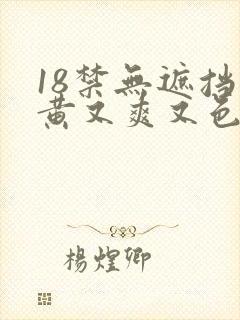 18禁無遮挡
黄又爽又色
楊煌卿